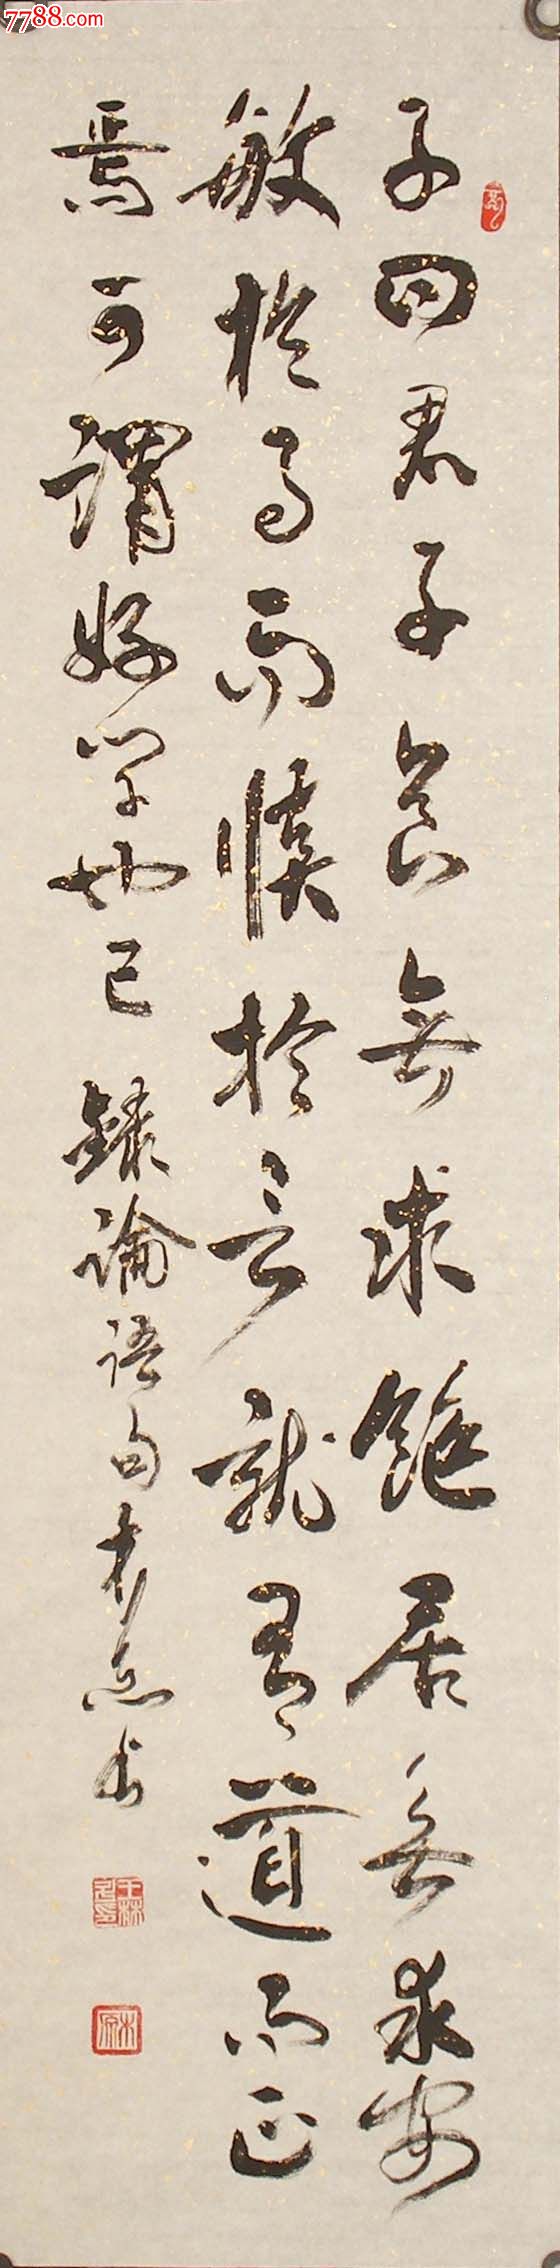 7788.com
子曰君子食無求飽居無求安
敏於事而慎於言就有道而正
焉可謂好学也已 錄論語句